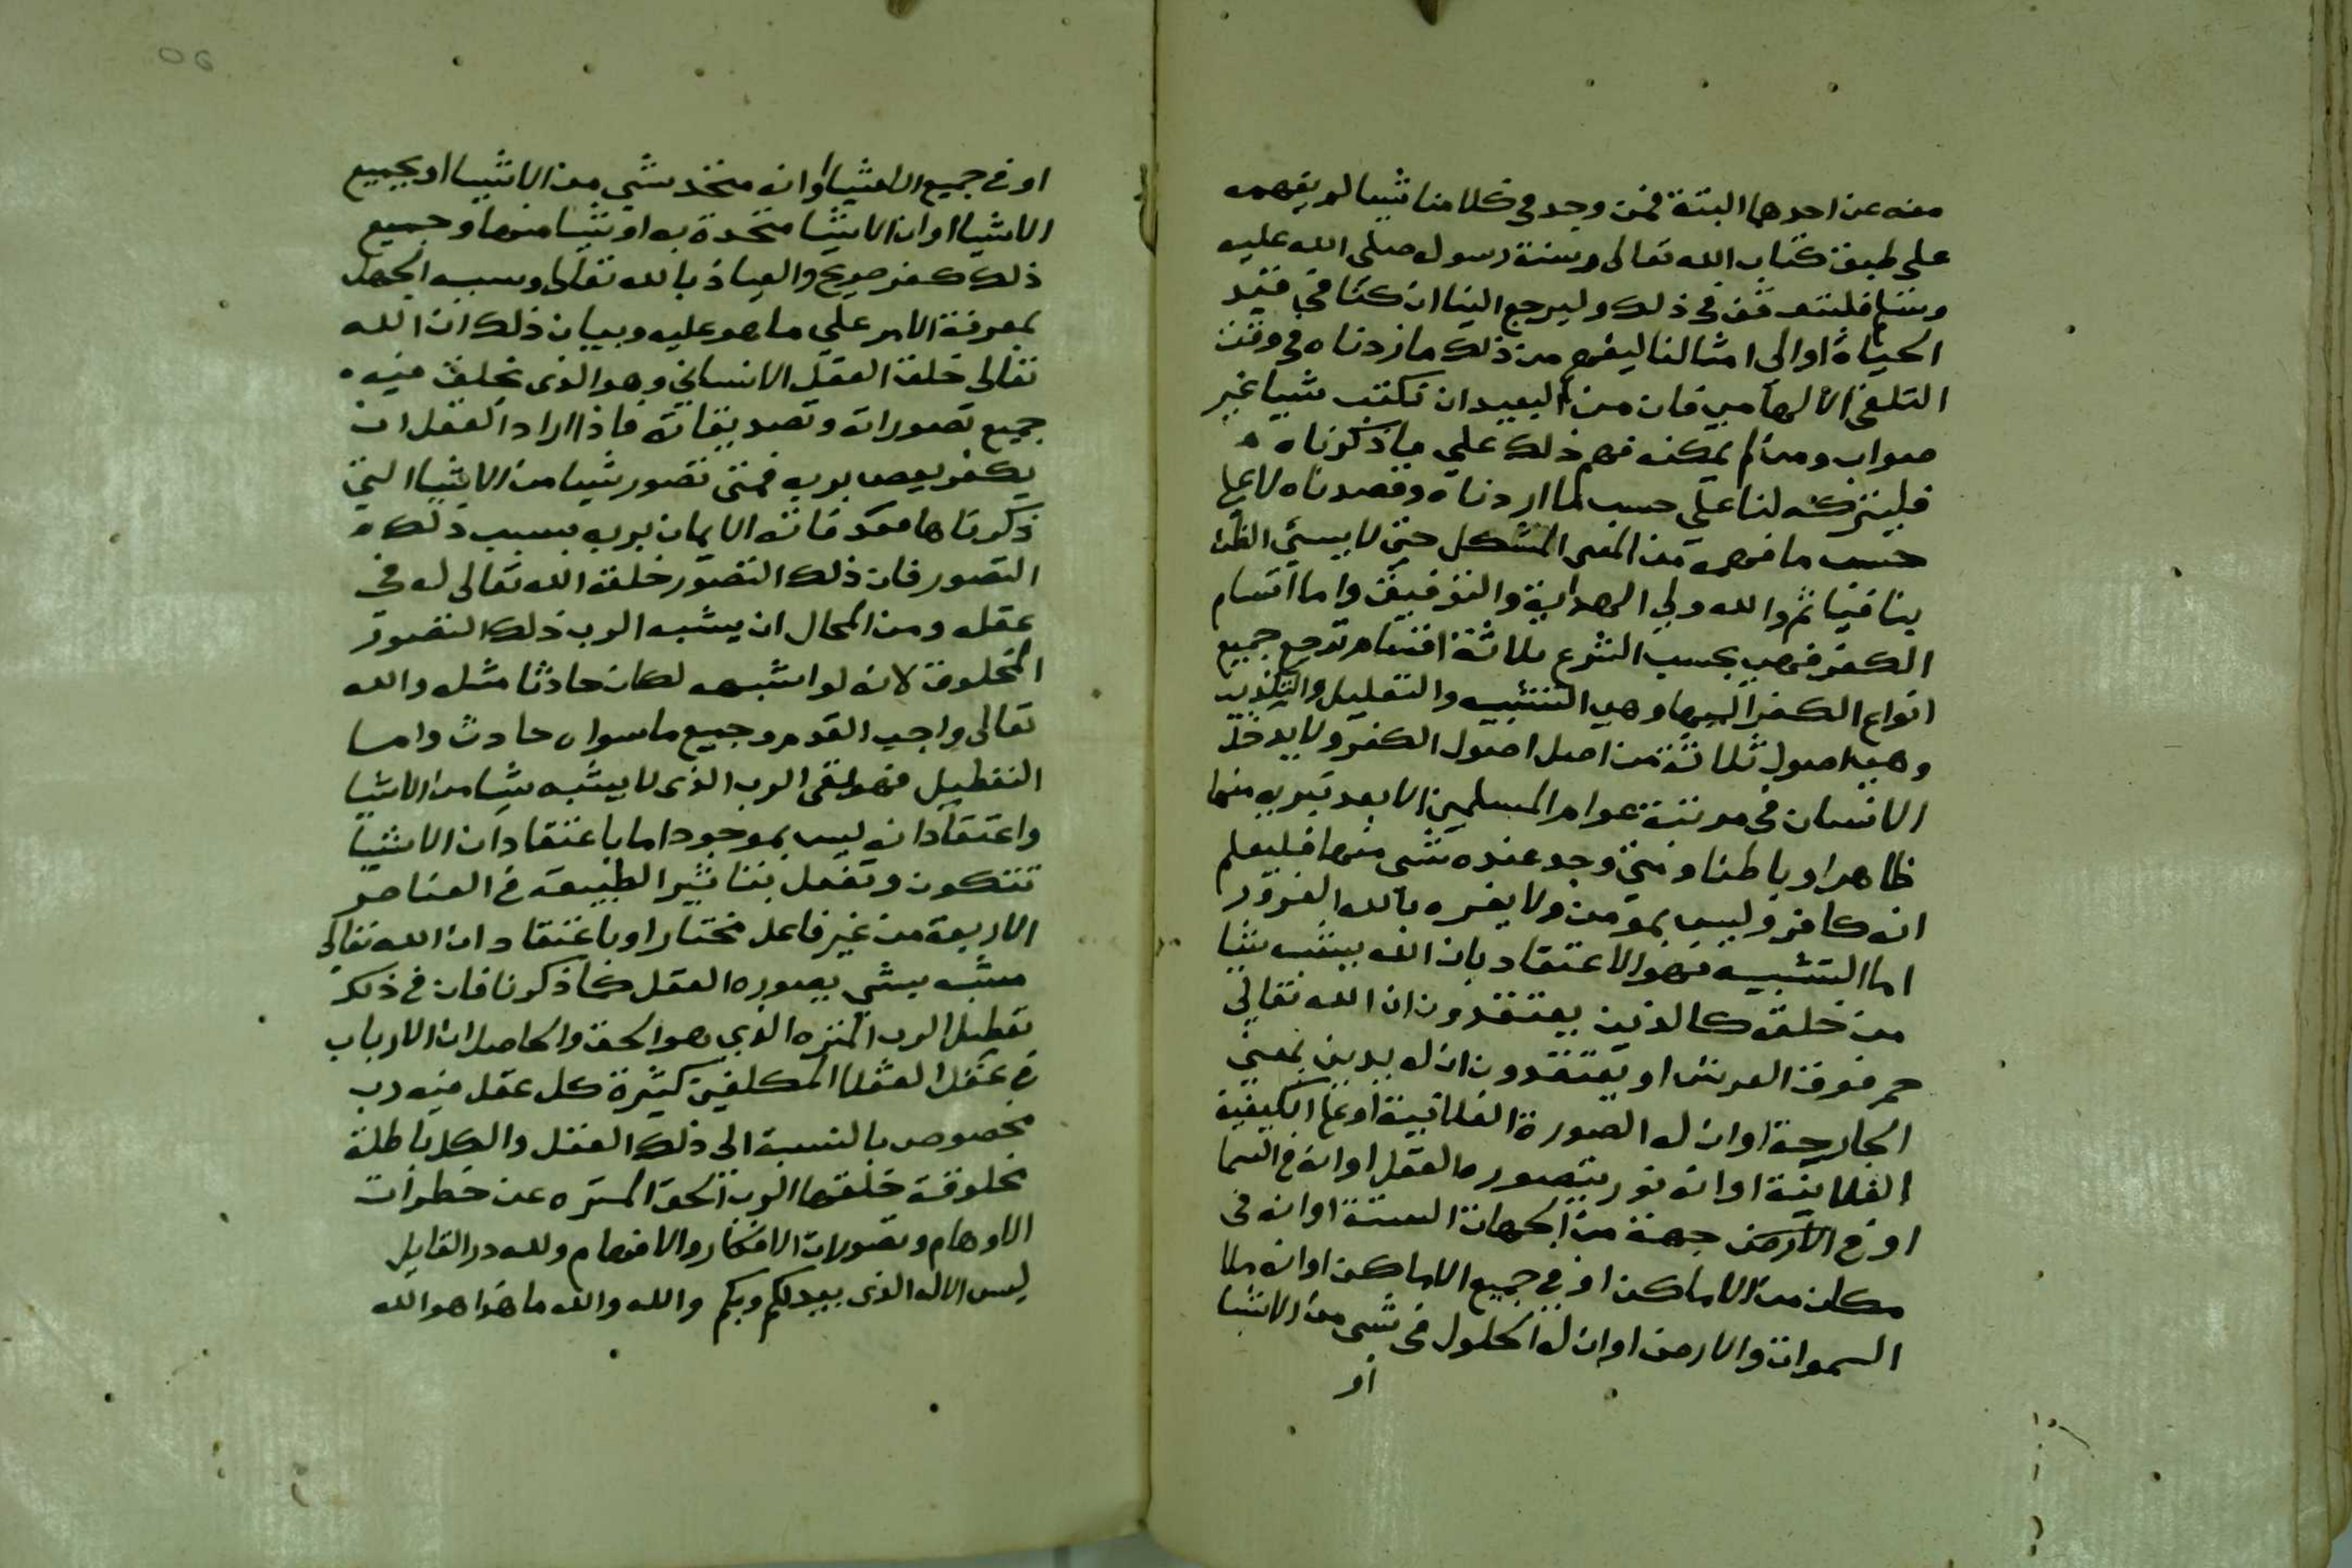 معه عن احدهما البتة فمن وجد في كلامنا شيا لم يفهمه
على طبق كتاب الله تعالى وسنة رسول صلى الله عليه
وسلم فليتوقف في ذلك وليرجع الينا ان كنا في قيد
الحياة او الى امثالنا ليفهم من ذلك ما اردناه في وقت
التلقي الالهامي فان من البعيد ان نكتب شيا غير
صواب ومن لم يمكنه فهم ذلك على ما ذكرناه
فليتركه لنا على حسب ما اردناه وقصدناه لا على
حسب ما فهمه من المعنى المشكل حتى لا يسيئ الظن
بنا فياثم والله ولي الهداية والتوفيق واما اقسام
الكفر فهي بحسب الشرع ثلاثة اقسام ترجع جميع
انواع الكفر اليها وهي التشبيه والتعطيل والتكذيب
وهي اصول ثلاثة من اصل اصول الكفر ولا يدخل
الانسان في مرتبة عوام المسلمين الا بعد تبريه منها
ظاهرا وباطنا ومتى وجد عنده شي منها فليعلم
انه كافر وليس بمومن ولا يغره بالله الغرور
اما التشبيه فهو الاعتقاد بان الله يشبه شيا
من خلقه كالذين يعتقدون ان الله تعالى
جسم فوق العرش او يعتقدون ان له يدين بمعنى
الجارحة او ان له الصورة الفلانية او على الكيفية
الفلانية او انه نور يتصوره العقل او انه في السما
او في الارض جهة من الجهات الستة او انه في
مكان من الاماكن او في جميع الاماكن او انه ملا
السموات والارض او ان له الحلول في شي من الاشيا
او
او في جميع الاشيا او انه متحد بشي من الاشيا او بجميع
الاشيا او ان الاشيا متحدة به او شيا منها وجميع
ذلك كفر صريح والعياذ بالله تعالى وسببه الجهل
بمعرفة الامر على ما هو عليه وبيان ذلك ان الله
تعالى خلق العقل الانساني وهو الذي يخلق فيه
جميع تصوراته وتصديقاته فاذا اراد العقل ان
يكفر بربه فمتى تصور شيا من الاشيا التي
ذكرناها فقد فاته الايمان بربه بسبب ذلك
التصور فان ذلك التصور خلقه الله تعالى له في
عقله ومن المحال ان يشبه الرب ذلك التصور
المخلوق لانه لو اشبهه لكان حادثا مثله والله
تعالى واجب القدم وجميع ما سواه حادث واما
التعطيل فهو نفي الرب الذي لا يشبه شيا من الاشيا
واعتقاد انه ليس بموجود اما باعتقاد ان الاشيا
تتكون وتفعل بتاثير الطبيعة في العناصر
الاربعة من غير فاعل مختار او باعتقاد ان الله تعالى
مشبه بشي يصوره العقل كما ذكرنا فان في ذلك
تعطيل الرب المنزه الذي هو الحق والحاصل ان الارباب
في عقل العقلا المكلفين كثيرة كل عقل فيه رب
مخصوص بالنسبة الى ذلك العقل والكل باطلة
مخلوقة خلقها الرب الحق المنزه عن خطرات
الاوهام وتصورات الافكار والافهام ولله در القايل
ليس الاله الذي يبدلكم وبكم والله والله ما هذا هو الله